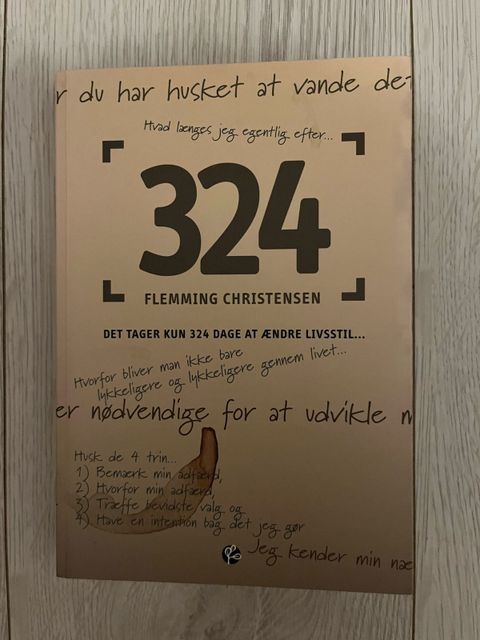 r du har husket at vande det
Hvad længes jeg egentlig efter...
324
FLEMMING CHRISTENSEN
DET TAGER KUN 324 DAGE AT ÆNDRE LIVSSTIL...
Hvorfor bliver man ikke bare
lykkeligere og lykkeligere gennem livet...
er nødvendige for at udvikle m
Husk de 4 trin...
1) Bemærk min adfærd,
2) Hvorfor min adfærd,
3) Træffe bevidste valg og
4) Have en intention bag det jeg gør
Jeg kender min næ